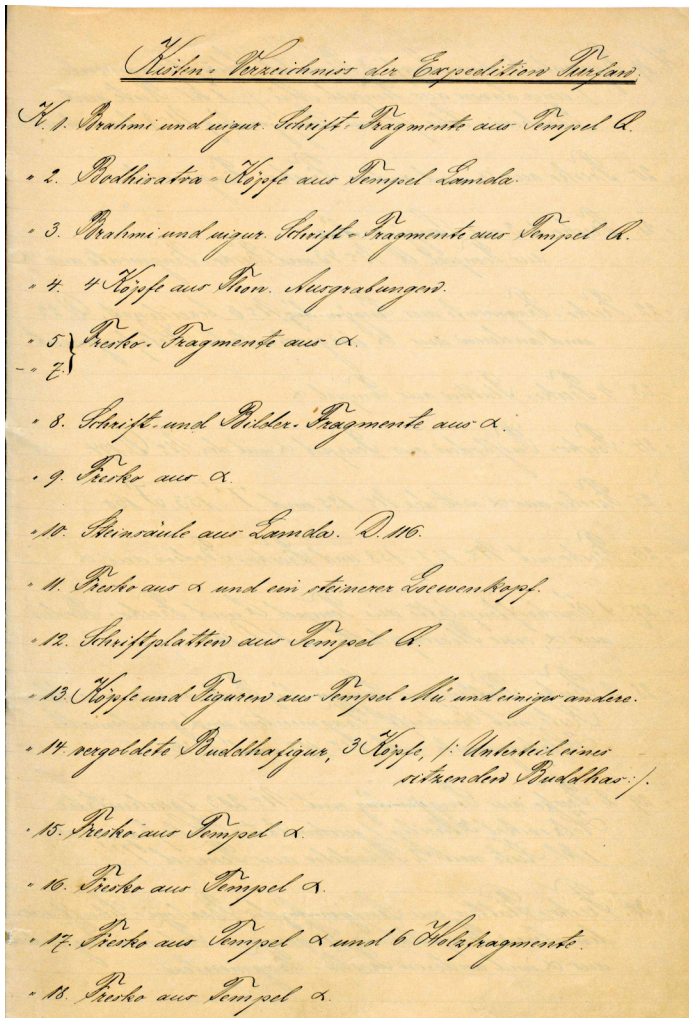 Kisten-Verzeichniss der Expedition Turfan.
K. 1. Brahmi und uigur. Schrift-Fragmente aus Tempel Q.
" 2. Bodhisatva-Köpfe aus Tempel Lamda.
" 3. Brahmi und uigur. Schrift-Fragmente aus Tempel Q.
" 4. 4 Köpfe aus Thon. Ausgrabungen.
" 5 } Fresko-Fragmente aus α.
– " 7.
" 8. Schrift- und Bilder-Fragmente aus α.
" 9. Fresko aus α.
" 10. Steinsäule aus Lamda. D. 116.
" 11. Fresko aus α und ein steinerer Loewenkopf.
" 12. Schriftplatten aus Tempel Q.
" 13. Köpfe und Figuren aus Tempel Mü und einiges andere.
" 14. vergoldete Buddhafigur, 3 Köpfe, /: Unterteil eines
sitzenden Buddhas :/.
" 15. Fresko aus Tempel α.
" 16. Fresko aus Tempel α.
" 17. Fresko aus Tempel α und 6 Holzfragmente.
" 18. Fresko aus Tempel α.